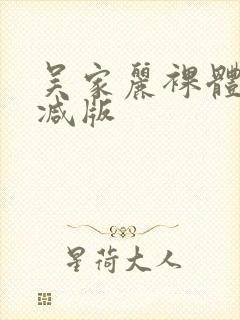 吴家麗裸體
减版
星荷大人